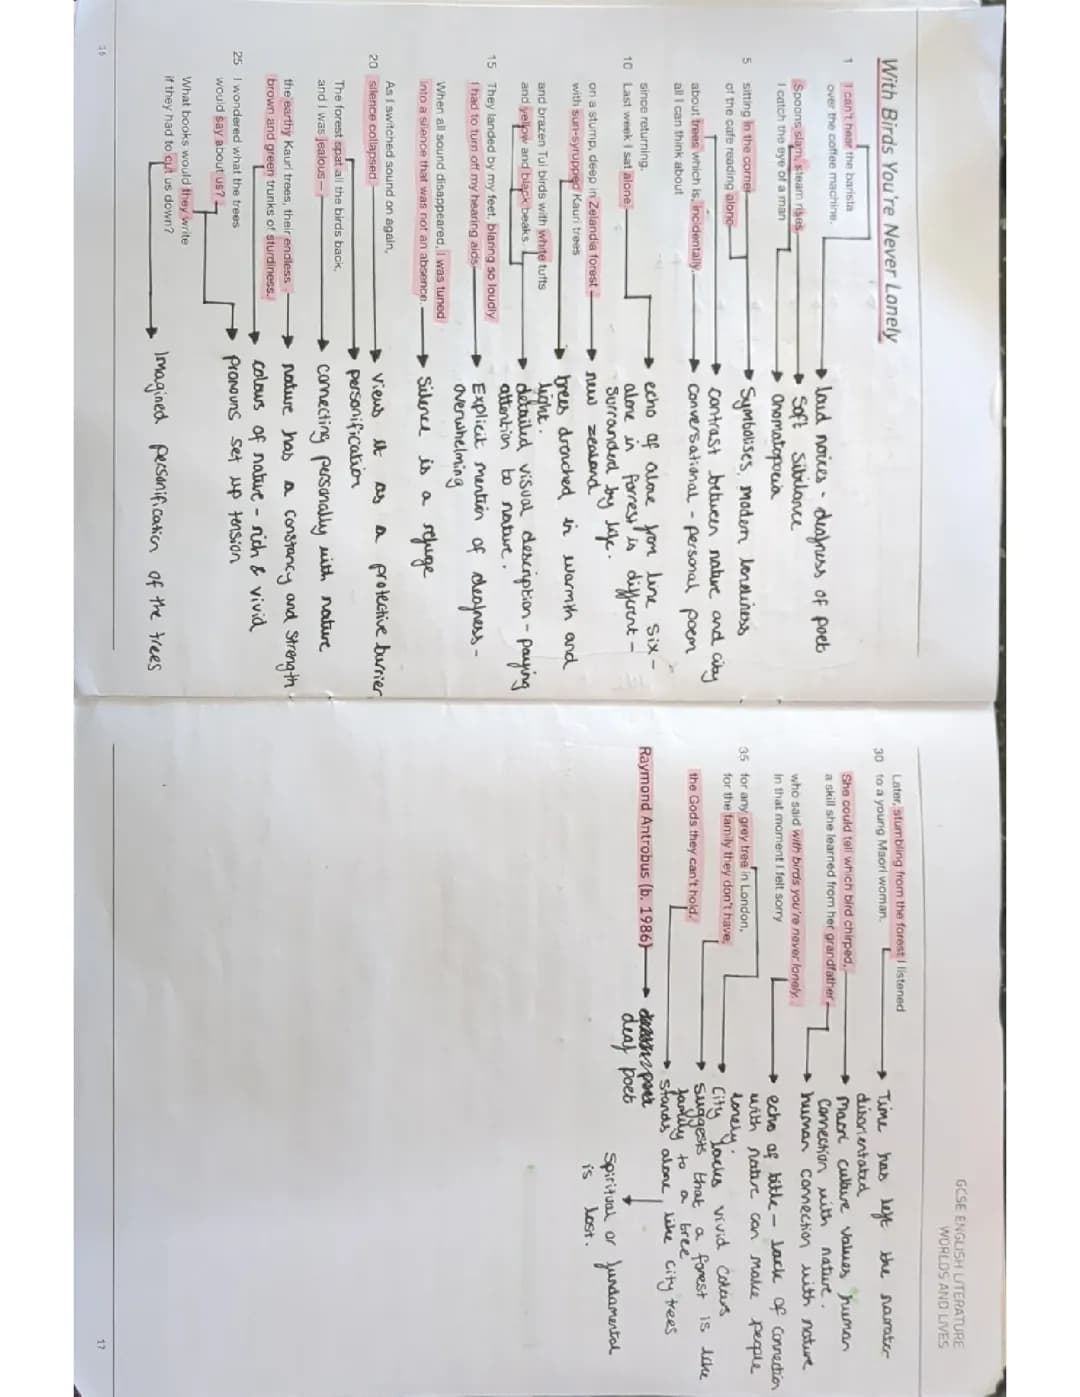 With Birds You're Never Lonely
1 I can't hear the barista
over the coffee machine.
Spoons slam, steam rises.
I catch the eye of a man
5 sitting in the corner
of the cafe reading alone
about trees which is, incidentally,
all I can think about
since returning.
10 Last week I sat alone
on a stump, deep in Zelandia forest
with sun-syrupped Kauri trees
and brazen Tui birds with white tufts
and yellow and black beaks.
15 They landed by my feet, blaring so loudly
I had to turn off my hearing aids.
When all sound disappeared, I was tuned
into a silence that was not an absence.
As I switched sound on again,
20 silence collapsed.
The forest spat all the birds back,
and I was jealous —
the earthy Kauri trees, their endless
brown and green trunks of sturdiness.
25 I wondered what the trees
would say about us?
What books would they write
if they had to cut us down?
loud noices - deafness of poet
Soft Sibilance
Onomatopoeia
Symbolises modern loneliness
contrast between nature and city
conversational - personal poem
echo of alone from line six -
alone in forrest is different -
surrounded by life.
new zealand
trees drenched in warmth and
light.
detailed visual description - paying
attention to nature.
Explicit mention of deafness -
overwhelming
Silence is a refuge
Views it as a protective barrier
personification
connecting personally with nature
nature has a constancy and strength
colours of nature - rich & vivid
pronouns set up tension
Imagined personification of the trees
16
GCSE ENGLISH LITERATURE
WORLDS AND LIVES
Later, stumbling from the forest I listened
30 to a young Maori woman.
She could tell which bird chirped,
a skill she learned from her grandfather
who said with birds you're never lonely.
In that moment I felt sorry
35 for any grey tree in London,
for the family they don't have,
the Gods they can't hold.
Raymond Antrobus (b. 1986)
Time has left the narrator
disorientated
Maori culture values human
connection with nature.
human connection with nature
echo of title - lack of connection
with nature can make people
lonely.
City lacks vivid colours
suggests that a forest is like
family to a tree
stands alone, like city trees
deaf poet
Spiritual or fundamental
is lost.
17